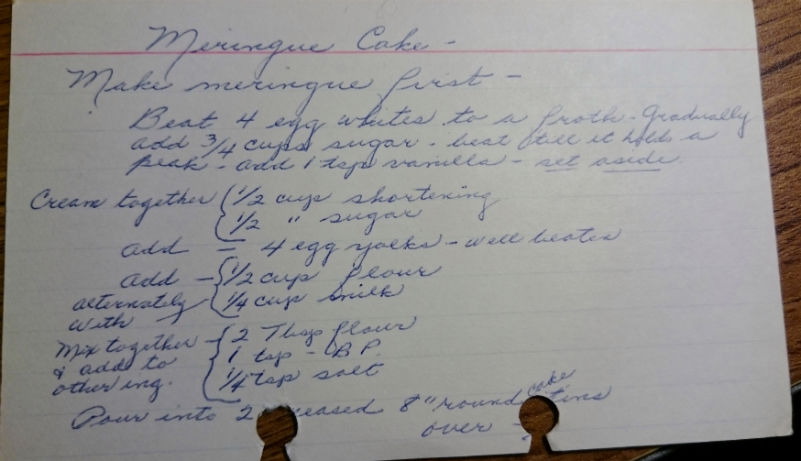 Meringue Cake -
Make meringue first -
Beat 4 egg whites to a froth - Gradually
add 3/4 cups sugar - beat till it holds a
peak - add 1 tsp vanilla - set aside.
Cream together { 1/2 cup shortening
1/2 " sugar
add = 4 egg yolks - well beaten
add - { 1/2 cup flour
alternately 1/4 cup milk
with
Mix together { 2 Tbsp flour
& add to 1 tsp - B.P.
other ing. 1/4 tsp salt
Pour into 2 8" round cake tins
over